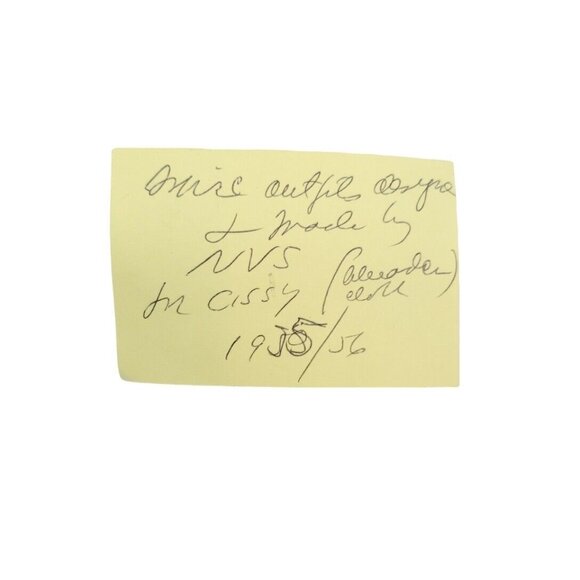 Misc outfits design
& made by
NVS
for CISSY (Alexander
doll)
1955/56